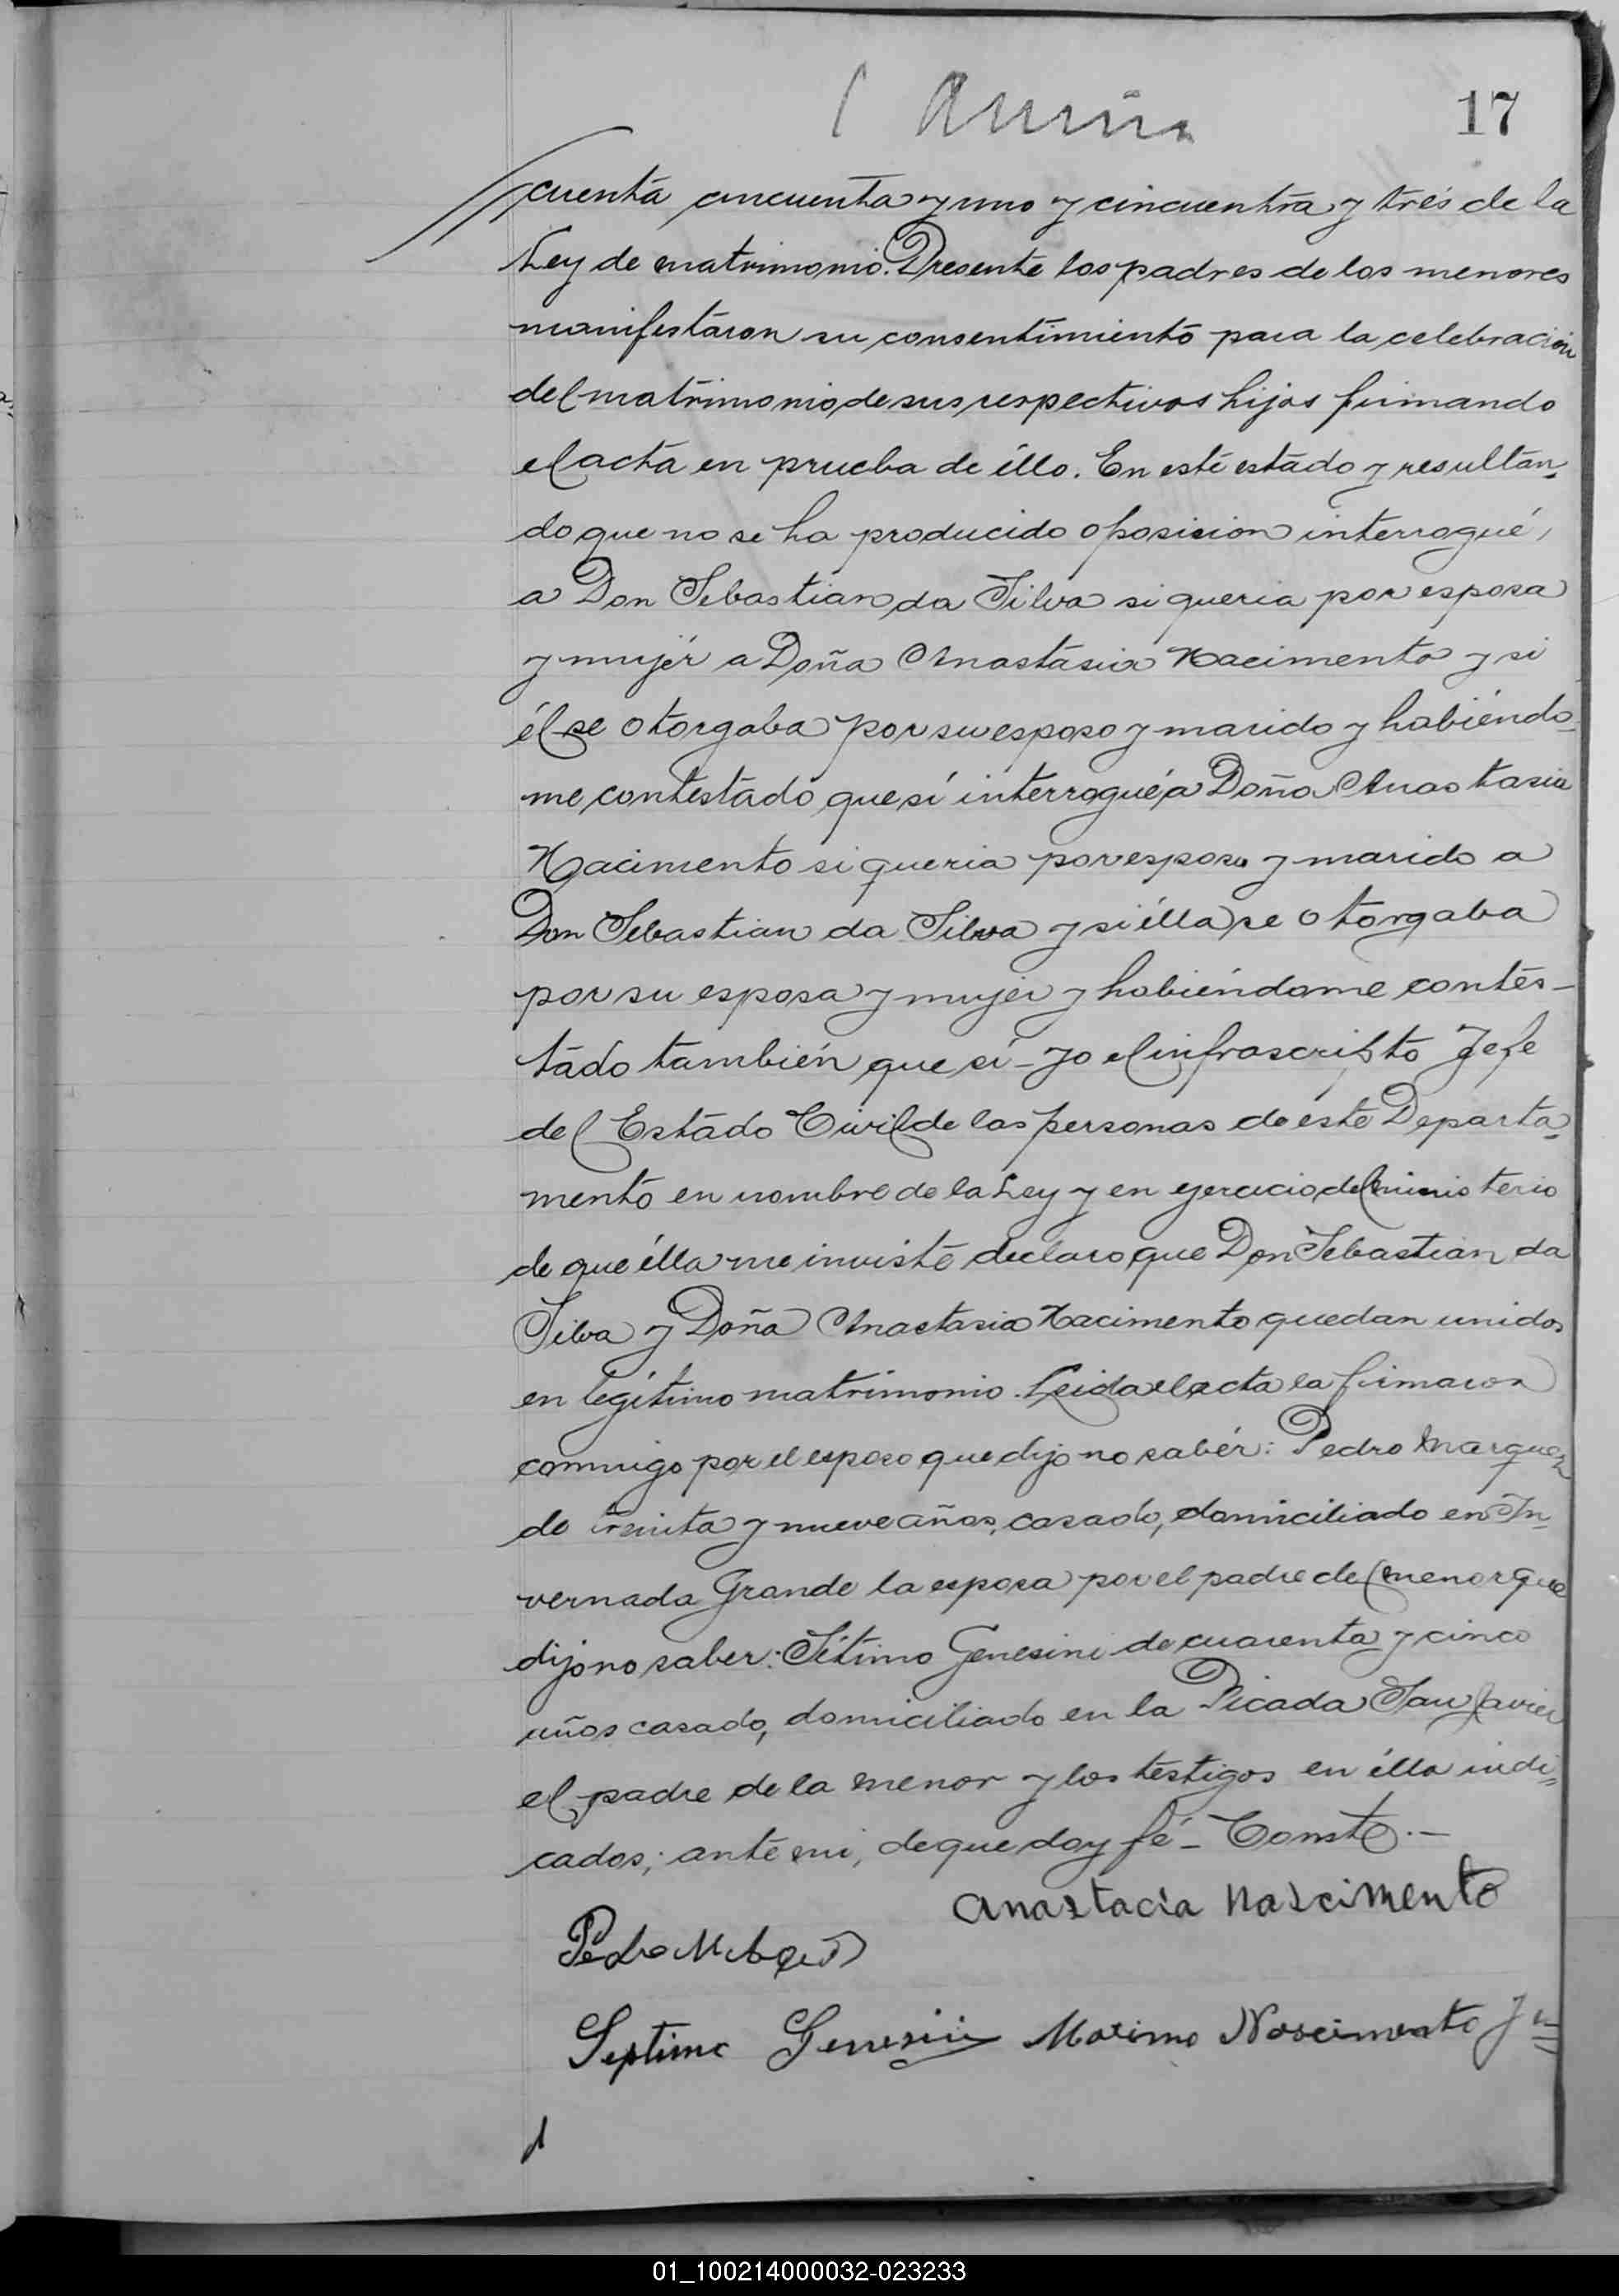 17
cuenta cincuenta y uno y cincuenta y tres de la
Ley de matrimonio. Presente los padres de los menores
manifestaron su consentimiento para la celebracion
del matrimonio de sus respectivos hijos firmando
el acta en prueba de éllo. En este estado y resultan-
do que no se ha producido oposicion interrogué,
a Don Sebastian da Silva si queria por esposa
y mujér a Doña Anastasia Nacimento y si
él se otorgaba por su esposo y marido y habiéndo-
me contestado que sí interrogué a Doña Anastasia
Nacimento si queria por esposo y marido a
Don Sebastian da Silva y si élla se otorgaba
por su esposa y mujer y habiéndome contes-
tado también que sí - yo el infrascripto Jefe
del Estado Civil de las personas de este Departa-
mento en nombre de la Ley y en ejercicio del ministerio
de que élla me inviste declaro que Don Sebastian da
Silva y Doña Anastasia Nacimento quedan unidos
en legítimo matrimonio. Leida el acta la firmaron
conmigo por el esposo que dijo no sabér: Pedro Marquez
de treinta y nueve años, casado, domiciliado en In-
vernada Grande la esposa por el padre del menor que
dijo no saber: Sétimo Genesini de cuarenta y cinco
años casado, domiciliado en la Picada San Javier
el padre de la menor y los testigos en élla indi-
cados; ante mi, de que doy fé - Conste. -
Anastacia Nascimento
Pedro
Septimo Genesini Maximo Nascimento